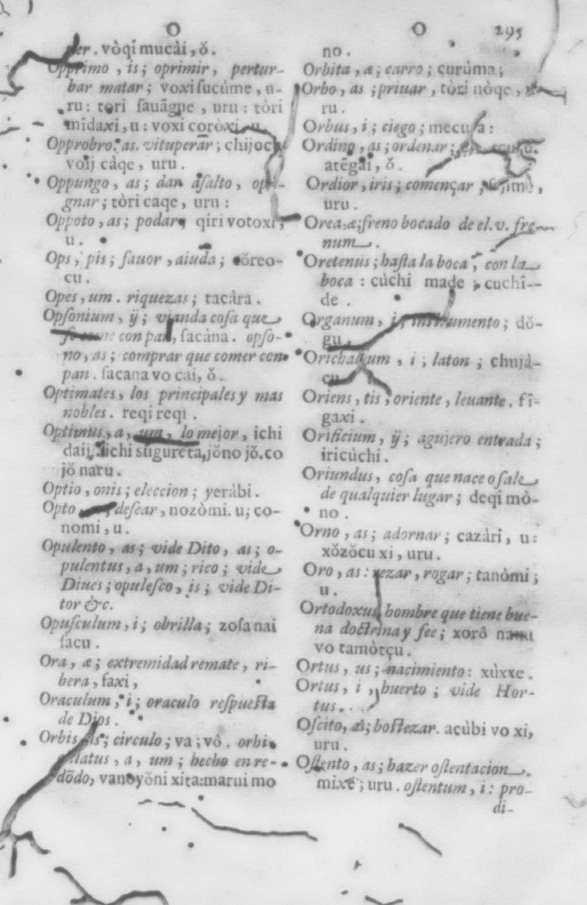 O O 295
per. vòqi mucài, ǒ.
Opprimo, is; oprimir, pertur-
bar matar; voxi sucúme, u-
ru: tòri sauāgne, uru: tòri
midaxi, u: voxi coròxi, u.
Opprobro. as. vituperar; chijocu
voij càqe, uru.
Oppungo, as; dar asalto, opu-
gnar; tòri caqe, uru:
Oppoto, as; podar; qiri votoxi,
u.
Ops, pis; fauor, aiuda; cǒreo-
cu.
Opes, um. riquezas; tacára.
Opsonium, ij; vianda cosa que
se come con pan, sacàna. opso-
no, as; comprar que comer con
pan. sacana vo cai, ǒ.
Optimates, los principales y mas
nobles. reqi reqi.
Optimus, a, um, lo mejor, ichi
daij, ichi suguretà, jǒno jǒ. co
jǒ naru.
Optio, onis; eleccion; yeràbi.
Opto desear, nozòmi. u; co-
nomi, u.
Opulento, as; vide Dito, as; o-
pulentus, a, um; rico; vide
Diues; opulesco, is; vide Di-
tor &c.
Opusculum, i; obrilla; zosa nai
sacu.
Ora, æ; extremidad remate, ri-
bera, faxi,
Oraculum, i; oraculo respuesta
de Dios.
Orbis, is; circulo; va; vô. orbi-
culatus, a, um; hecho en re-
dōdo, vanoyǒni xita: marui mo
no.
Orbita, æ; carro; curúma;
Orbo, as; priuar, tòri nòqe,
ru.
Orbus, i; ciego; mecusa:
Ordino, as; ordenar;
atēgài, ǒ.
Ordior, iris; començar,
uru.
Orea. æ; freno bocado de el. v. fre-
num.
Oretenus; hasta la boca, con la
boca: cúchi made; cuchi-
de.
Organum, i; instrumento; dǒ-
gu.
Orichalcum, i; laton; chujà-
cu.
Oriens, tis, oriente, leuante. fi-
gaxi.
Orificium, ij; agujero entrada;
iricúchi.
Oriundus, cosa que nace o sale
de qualquier lugar; deqi mò-
no.
Orno, as; adornar; cazàri, u:
xǒzǒcu xi, uru.
Oro, as: rezar, rogar; tanòmi;
u.
Ortodoxus, hombre que tiene bue-
na doctrina y fee; xorǒ nanu
vo tamòtçu.
Ortus, us; nacimiento: xùxxe.
Ortus, i, huerto; vide Hor-
tus.
Oscito, as; bostezar. acùbi vo xi,
uru.
Ostento, as; hazer ostentacion.
mixe; uru. ostentum, i: pro-
di-